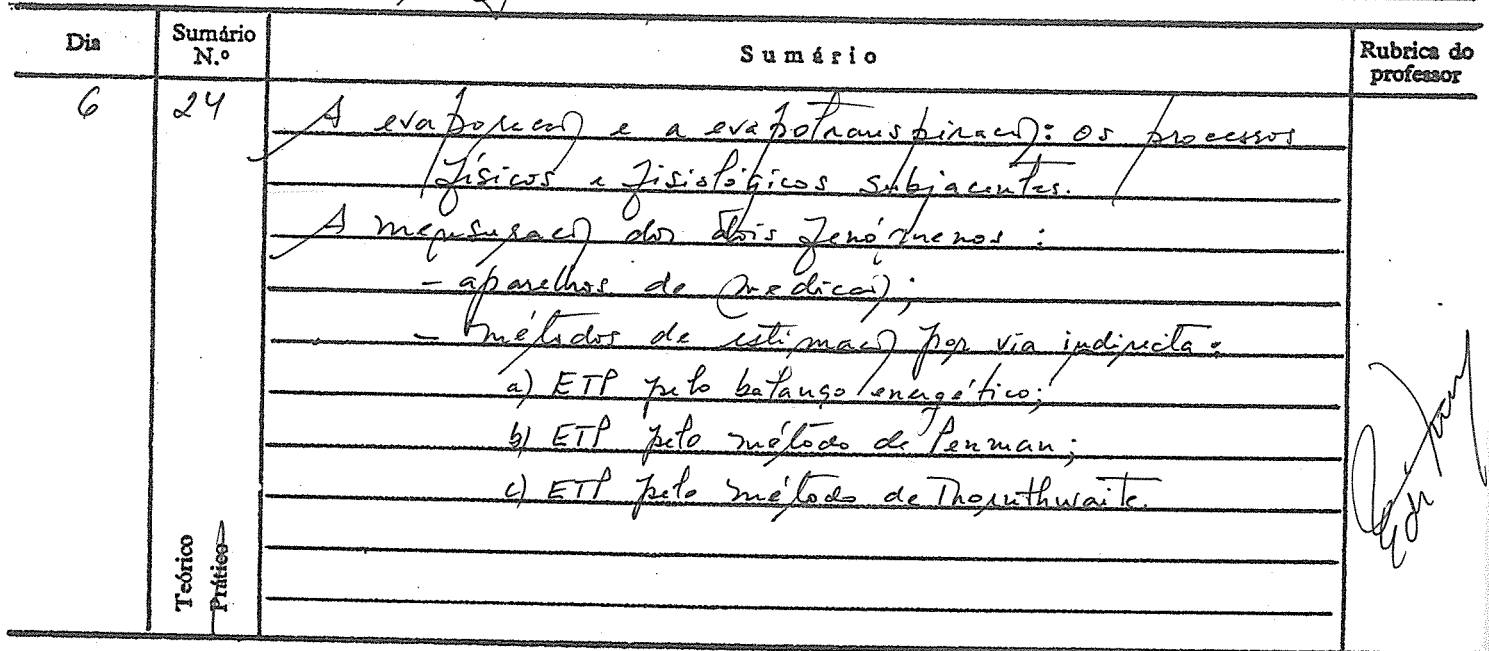 Dia
Sumário N.º
Sumário
Rubrica do professor
6
24
A evaporação e a evapotranspiração: os processos
físicos e fisiológicos subjacentes.
A mensuração dos dois fenómenos:
- aparelhos de medição;
- métodos de estimação por via indirecta:
a) ETP pelo balanço energético;
b) ETP pelo método de Penman;
c) ETP pelo método de Thornthwaite.
Teórico
Prático